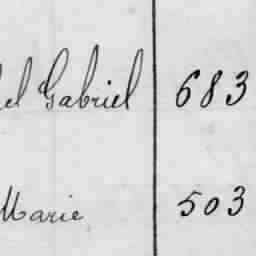 Gabriel 683
Marie 503